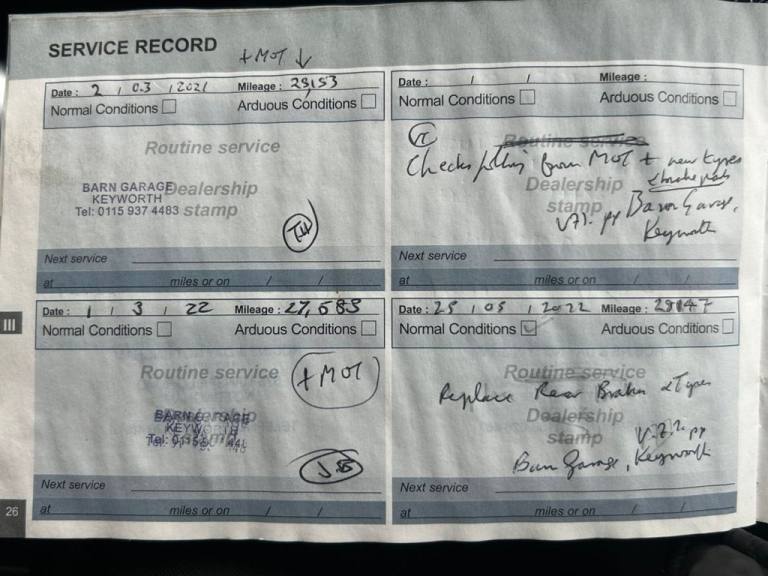 SERVICE RECORD
+ MOT ↓
Date : 2 / 03 / 2021 Mileage : 25,153
Normal Conditions Arduous Conditions
Routine service
Dealership
stamp
BARN GARAGE
KEYWORTH
Tel: 0115 937 4483
Next service
at miles or on / /
Date : / / Mileage :
Normal Conditions Arduous Conditions
Routine service
Checks from MOT + new tyres
& brake pads
Dealership
stamp
Barn Garage,
Keyworth
Next service
at miles or on / /
III
Date : 1 / 3 / 22 Mileage : 27,585
Normal Conditions Arduous Conditions
Routine service
+ MOT
Dealership
stamp
BARN GARAGE
KEYWORTH
Next service
26
at miles or on / /
Date : 25 / 05 / 2022 Mileage : 28147
Normal Conditions Arduous Conditions
Routine service
Replace Rear Brakes & Tyres
Dealership
stamp
Barn Garage, Keyworth
Next service
at miles or on / /